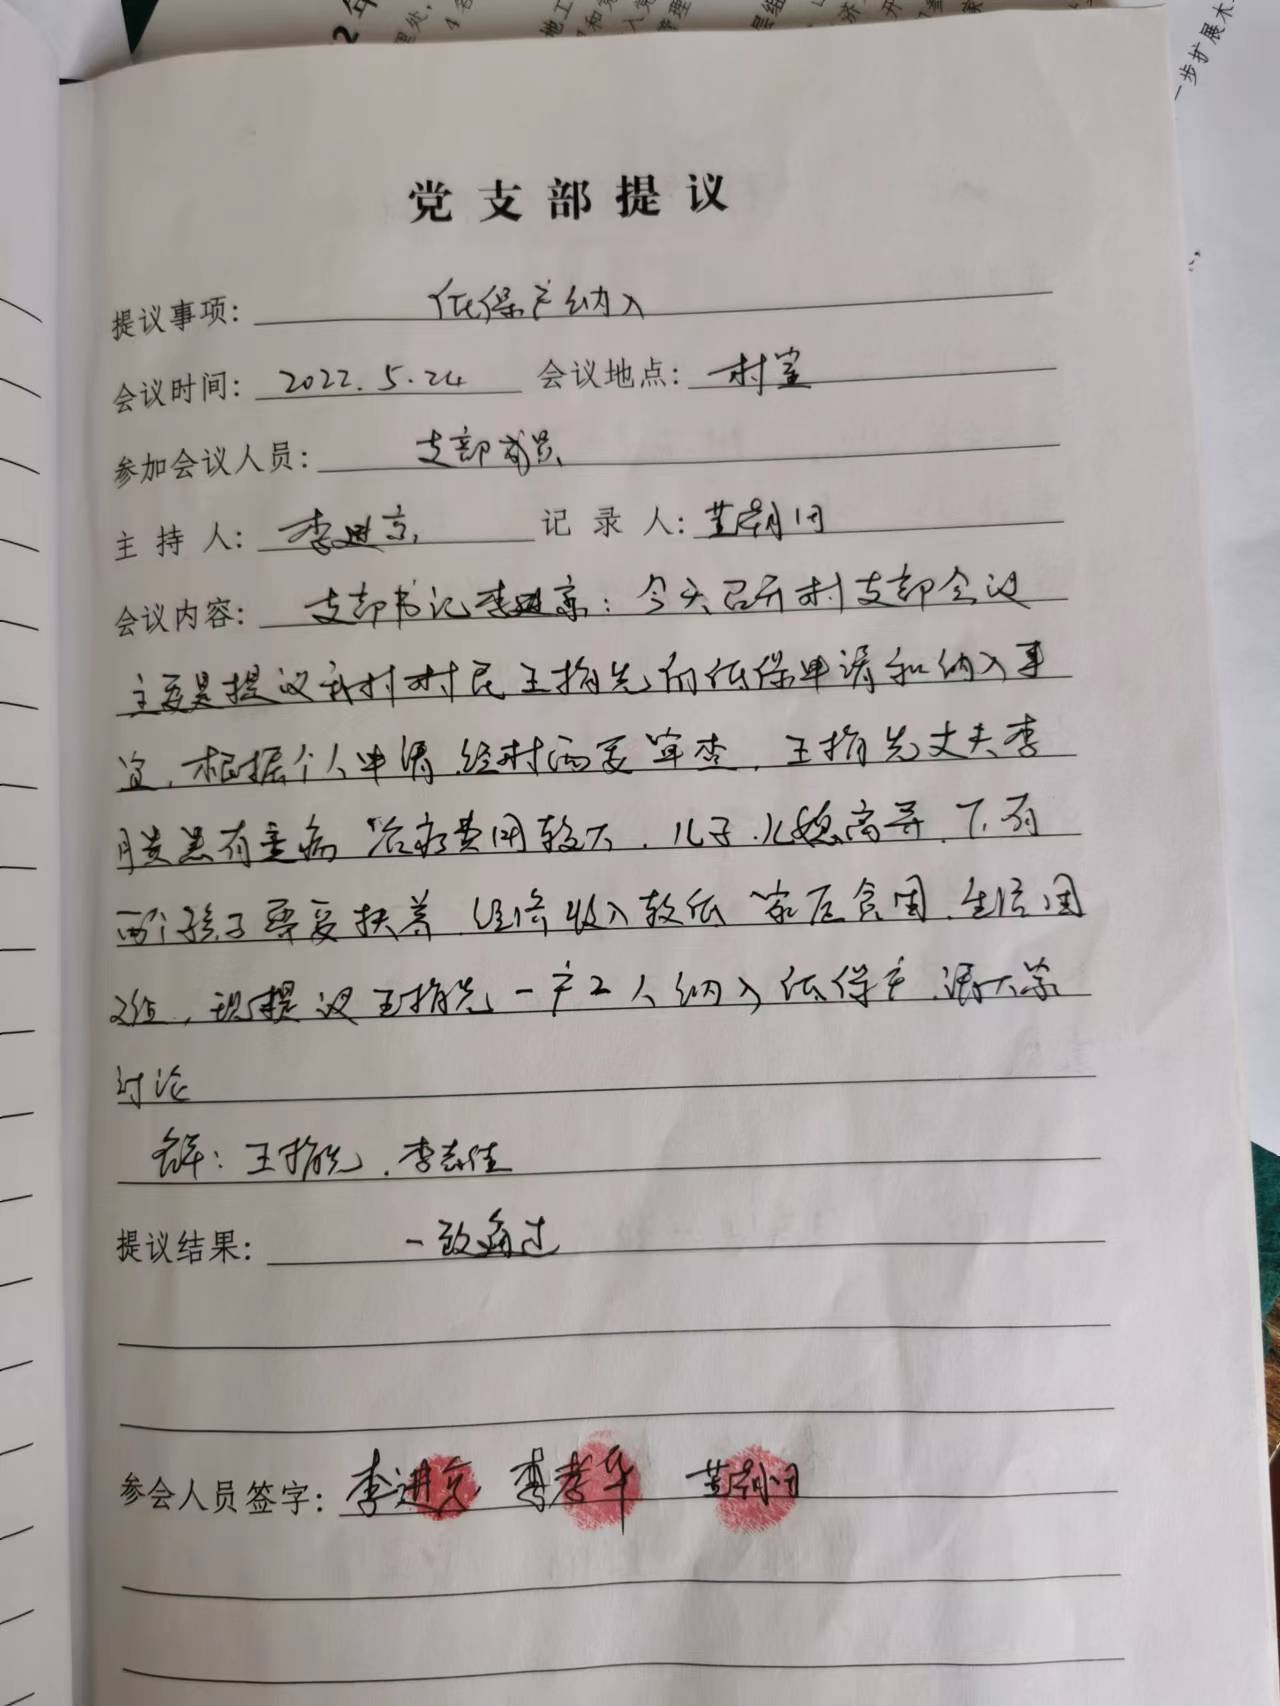 党支部提议
提议事项: 低保户纳入
会议时间: 2022.5.24 会议地点: 村室
参加会议人员: 支部成员
主持人: 李进京 记录人:
会议内容: 支部书记李进京:今天召开村支部会议
主要是提议我村村民王指先的低保申请和纳入事
宜,根据个人申请,经村两委审查,王指先丈夫李
患有重病 治疗费用较大,儿子儿媳离异,下有
两个孩子需要扶养,经济收入较低 家庭贫困,生活困
难,现提议王指先一户2人纳入低保户,请大家
讨论
名单:王指先,李志佳
提议结果: 一致通过
参会人员签字: 李进京 李孝华
一步扩展